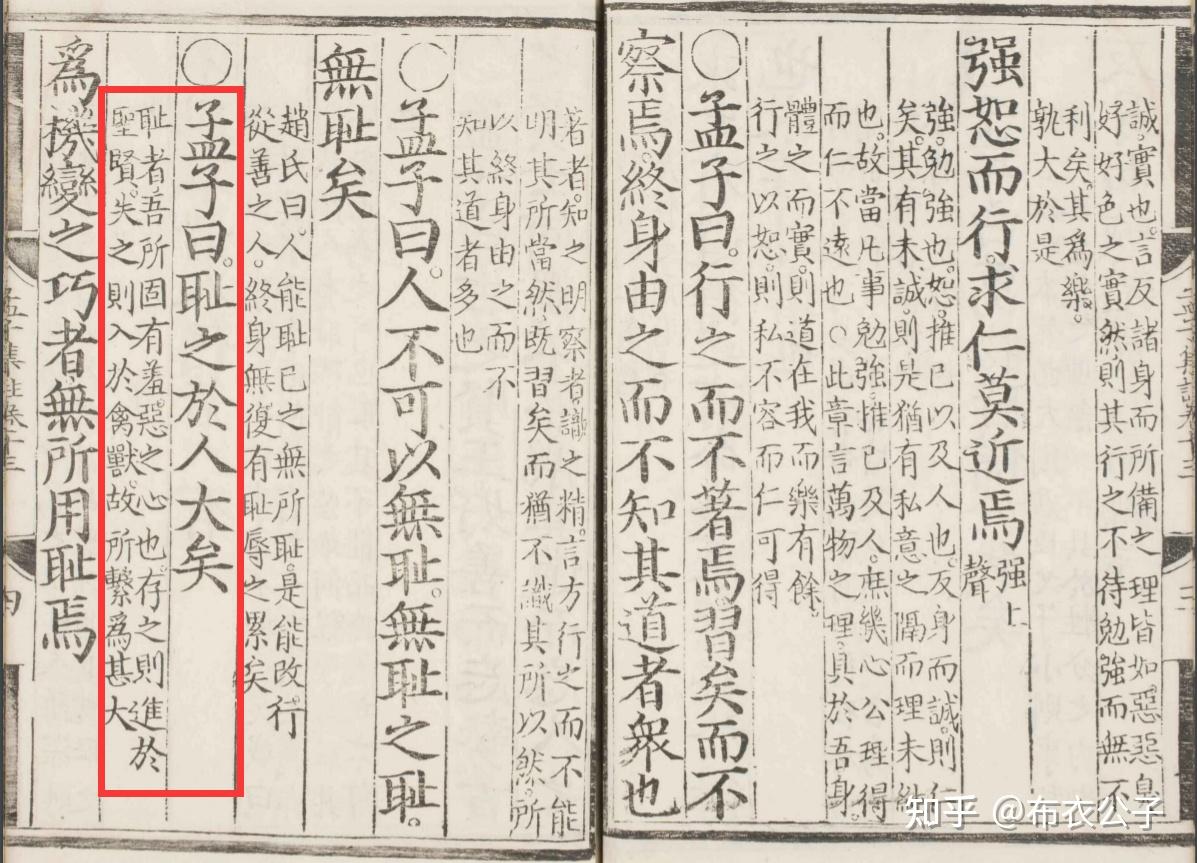 誠。實也。言反諸身而所備之理皆如惡惡臭
好好色之實然。則其行之不待勉強而無不
利矣。其爲樂。
孰大於是
强恕而行。求仁莫近焉
強上
聲
強。勉強也。恕。推己以及人也。反身而誠。則仁
矣。其有未誠。則是猶有私意之隔而理未純
也。故當凡事勉強。推己及人。庶幾心公理得
而仁不遠也○此章言萬物之理具於吾身。
體之而實。則道在我而樂有餘。
行之以恕。則私不容而仁可得
○孟子曰。行之而不著焉。習矣而不
察焉。終身由之而不知其道者衆也
著者。知之明。察者。識之精。言方行之而不能
明其所當然。既習矣而猶不識其所以然。所
以終身由之而不
知其道者多也
○孟子曰。人不可以無耻。無耻之耻。
無耻矣
趙氏曰。人能耻己之無所耻。是能改行
從善之人。終身無復有耻辱之累矣
○孟子曰。耻之於人大矣
耻者吾所固有羞惡之心也。存之則進於
聖賢。失之則入於禽獸。故所繫爲甚大
爲機變之巧者無所用耻焉
知乎 @布衣公子